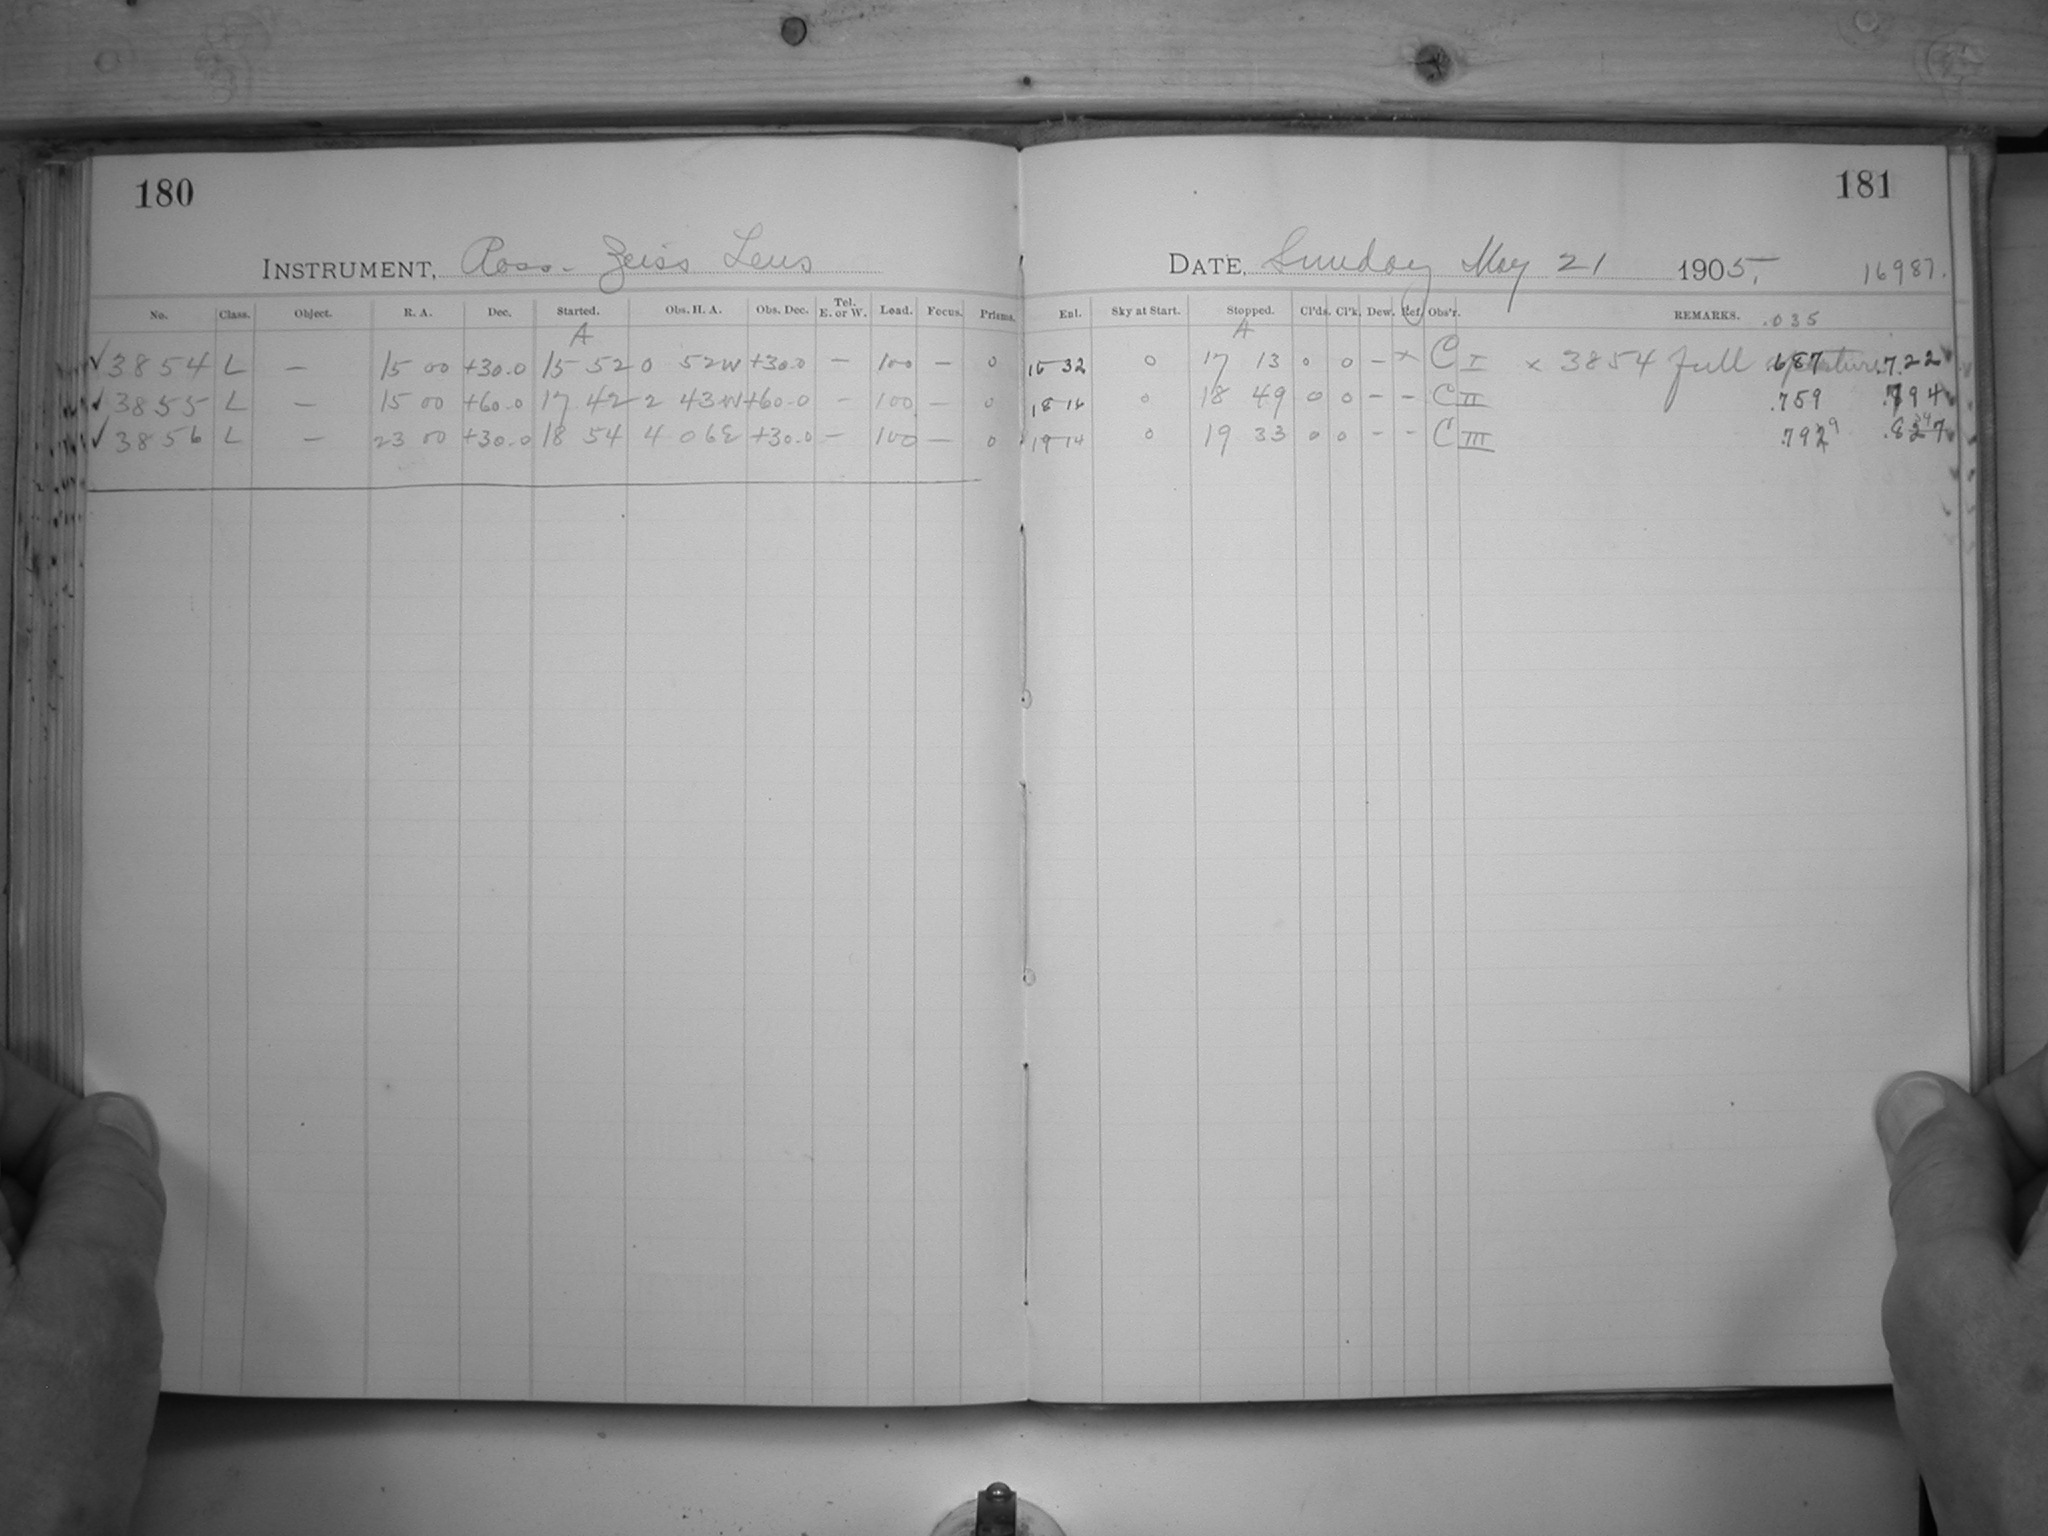 180
181
INSTRUMENT, Ross-Zeiss Lens
DATE, Sunday May 21 1905. 16987.
No. Class. Object. R. A. Dec. Started. Obs. H. A. Obs. Dec. Tel. E. or W. Load. Focus. Prisms. Enl. Sky at Start. Stopped. Cl'ds. Cl'k. Dew. Ref. Obs'r. REMARKS. .035
A A
✓3854 L — 15 00 +30.0 15 52 0 52W +30.0 — 100 — 0 16 32 0 17 13 0 0 – × C I × 3854 full aperture .687 .722
✓3855 L — 15 00 +60.0 17 42 2 43W +60.0 — 100 — 0 18 16 0 18 49 0 0 – – C II .759 .794
✓3856 L — 23 00 +30.0 18 54 4 06E +30.0 — 100 — 0 19 14 0 19 33 0 0 – – C III .792 .827